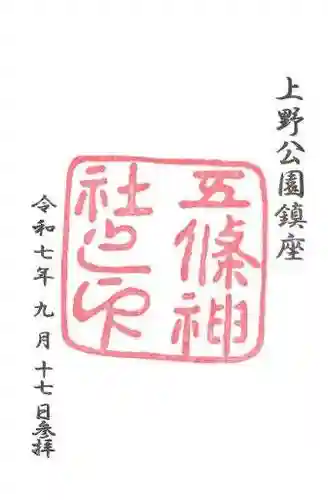 上野公園鎮座
五條神
社之印
令和七年九月十七日参拝